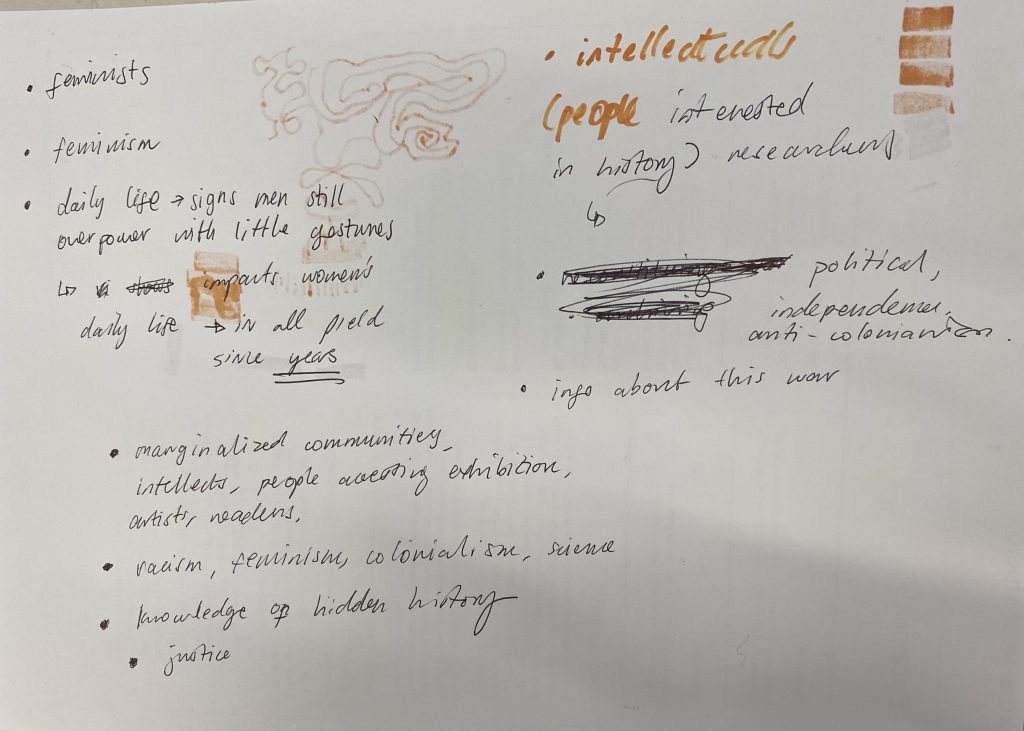 • feminists
• feminism
• daily life → signs men still
overpower with little gestures
↳ impacts women's
daily life → in all field
since years
• intellectuals
(people interested
in history) researchers
↳
• political,
independence,
anti-colonianism.
• info about this war
• marginalized communities,
intellects, people accessing exhibition,
artists, readers,
• racism, feminism, colonialism, science
• knowledge of hidden history
• justice